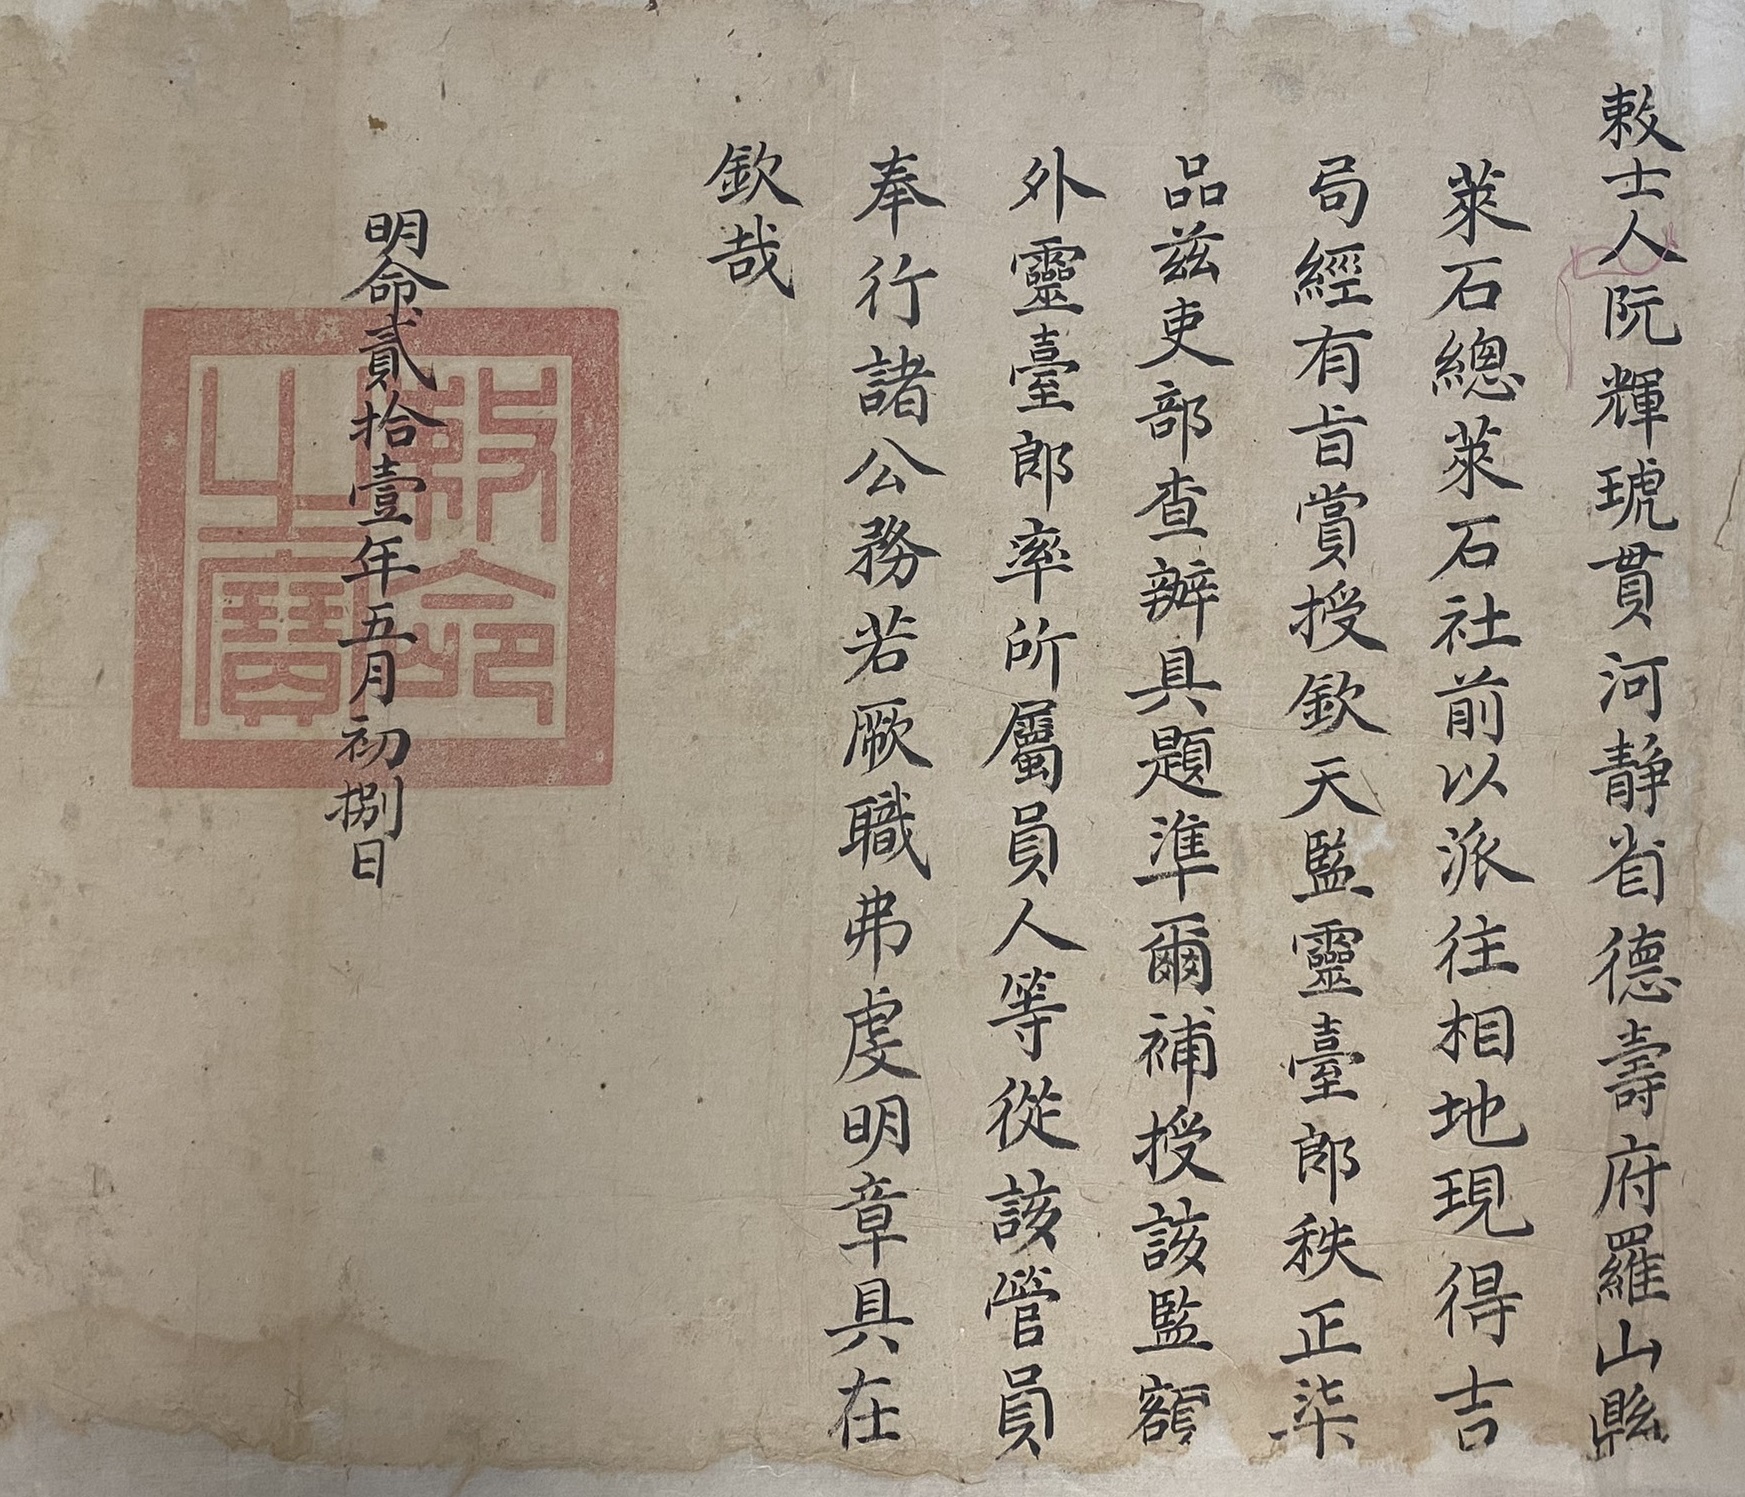 敕士人阮輝琥貫河靜省德壽府羅山縣
萊石總萊石社前以派往相地現得吉
局經有旨賞授欽天監靈臺郎秩正柒
品兹吏部查辦具題準爾補授該監額
外靈臺郎率所屬員人等從該管員
奉行諸公務若厥職弗虔明章具在
欽哉
明命貳拾壹年五月初捌日
敕命
之寶